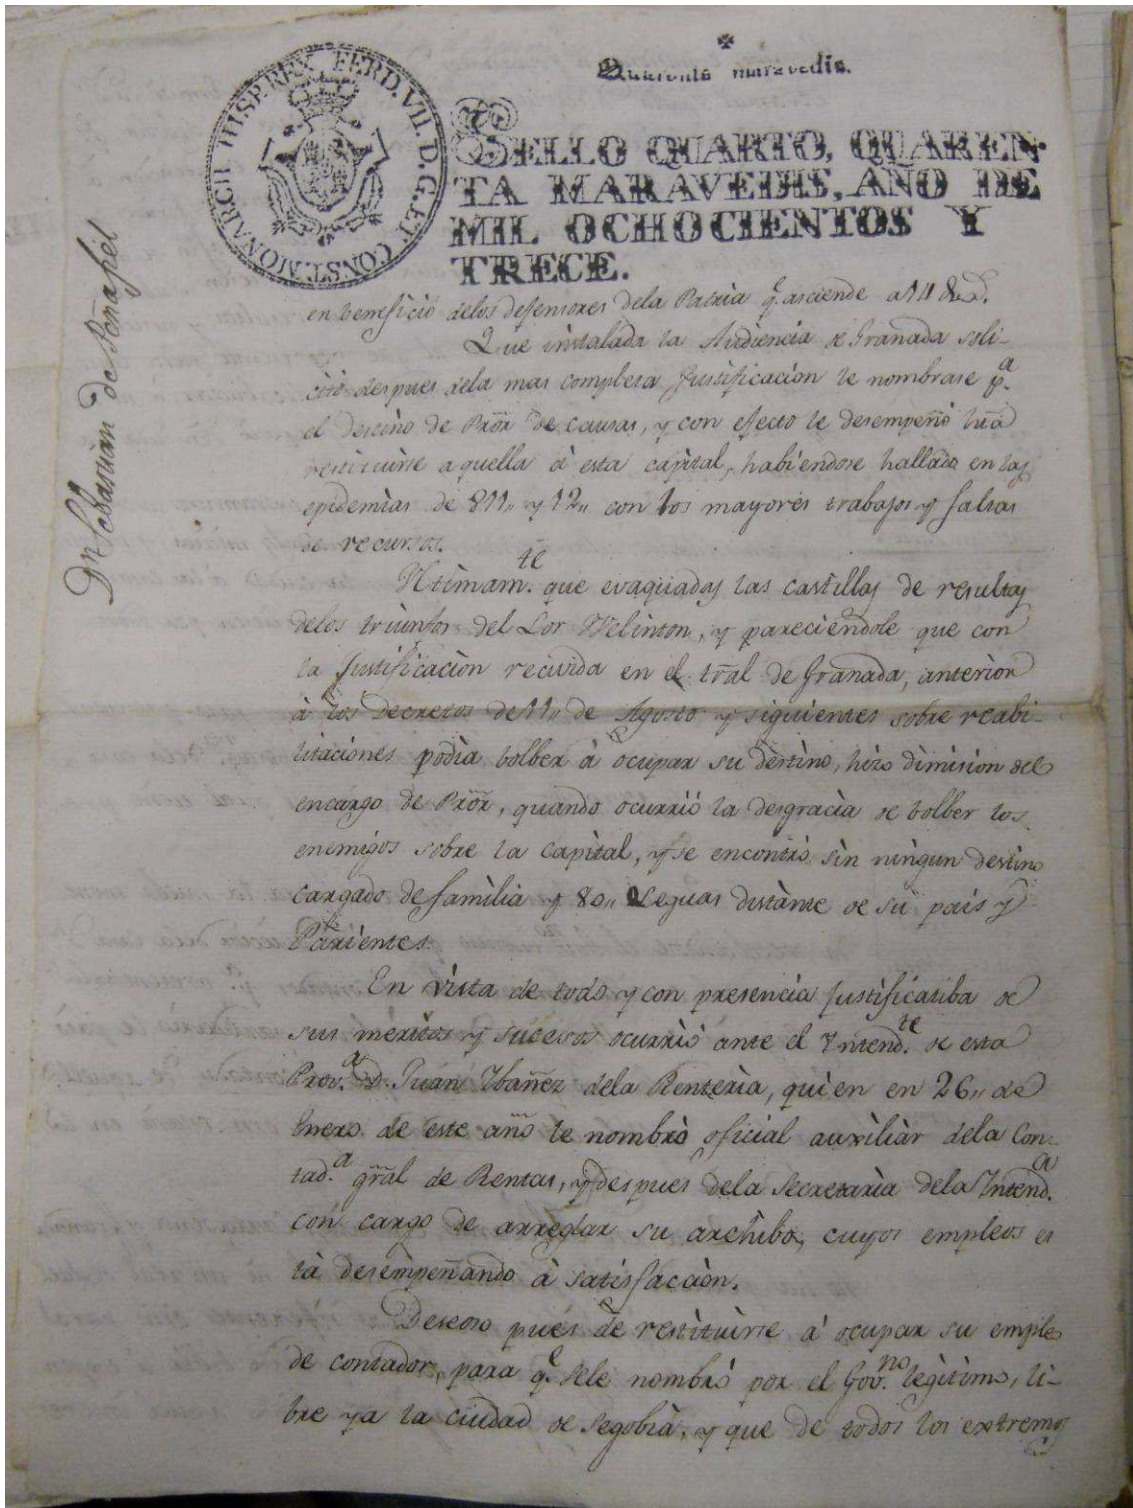 Quarenta maravedis.
HISP. REX FERD. VII. D. G. ET CONST. MONARCH.
SELLO QUARTO, QUAREN-
TA MARAVEDIS, AÑO DE
MIL OCHOCIENTOS Y
TRECE.
Dn Sebastian de Peñafiel
en beneficio delos defensores dela Patria q.e asciende a
Que instalada la Audiencia de Granada soli-
citó despues dela mas completa Justificacion le nombrase p.a
el destino de Prōr de causas, y con efecto le desempeñó htā
restituirse aquella á esta capital, habiendose hallado en las
epidemias de 811,, y 12,, con los mayores trabajos y faltas
de recursos.
Ultimam.te que evaquadas las castillas de resultas
delos triunfos del Lor Welinton, y pareciendole que con
la Justificacion recivida en el trāl de Granada, anterior
à los Decretos de 11,, de Agosto y siguientes sobre reabi-
litaciones podia bolber à ocupar su destino, hizo dimision del
encargo de Prōr, quando ocurrió la desgracia de bolber los
enemigos sobre la capital, y se encontró sin ningun destino
cargado de familia y 80,, leguas distante de su pais y
Parientes.
En vista de todo y con presencia justificatiba de
sus méritos y sucesos ocurrió ante el Yntend.te de esta
Prov.a D. Juan Ybañez dela Renteria, quien en 26,, de
Enero de este año le nombró oficial auxiliar dela Con-
tad.a grāl de Rentas, y despues dela Secretaria dela Intend.a
con cargo de arreglar su archibo, cuyos empleos es
tá desempeñando à satisfaccion.
Deseoso pues de restituirse á ocupar su empleo
de contador, para q.e sele nombró por el Gov.no legitimo, li-
bre ya la ciudad de Segobia, y que de todos los extremos